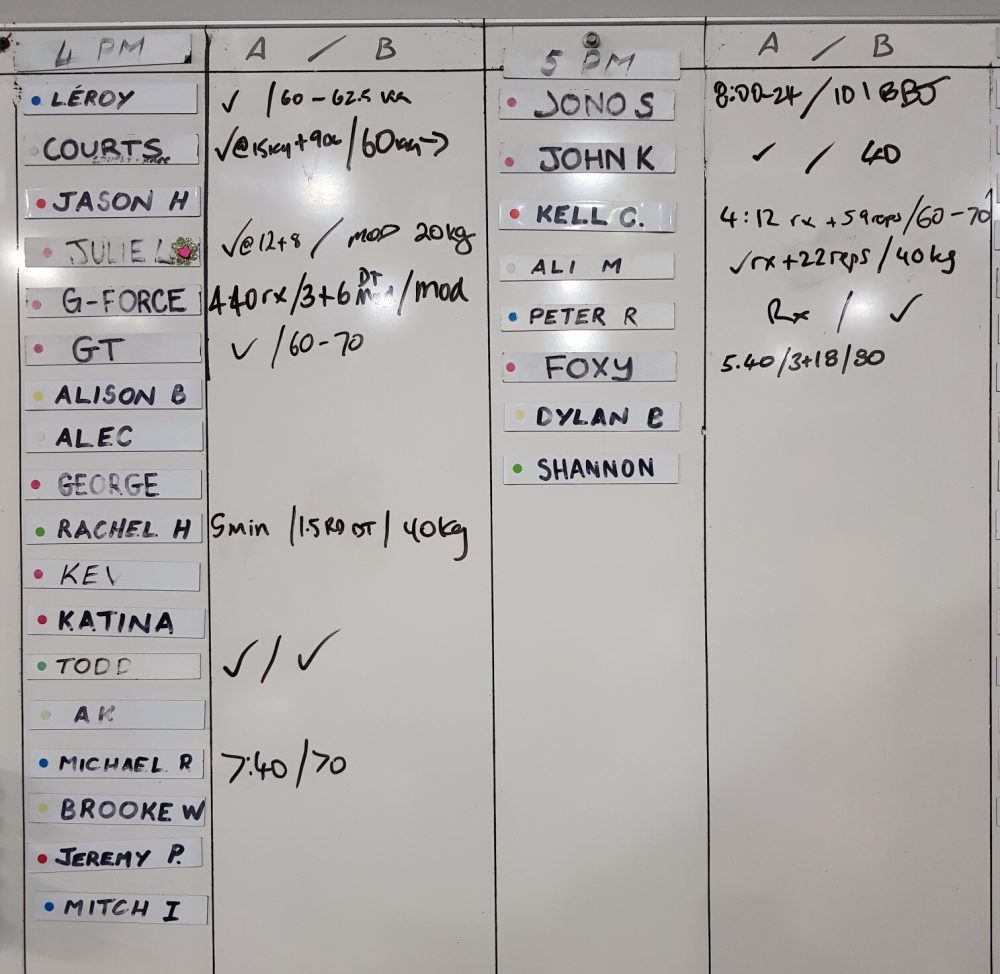 4 PM A / B
LÉROY ✓ /60-62.5 KG
COURTS ✓@15kg+90c /60kg→
JASON H
JULIE L ✓@12+8 / MOD 20kg
G-FORCE 440rx/3+6 DT /mod
GT ✓ /60-70
ALISON B
ALEC
GEORGE
RACHEL H 5min /1.5RD DT/ 40kg
KEV
KATINA
TODD ✓/✓
AK
MICHAEL R 7:40/70
BROOKE W
JEREMY P.
MITCH I
5 PM A / B
JONO S 8:00-24/101
JOHN K ✓ / 40
KELL C. 4:12 rx +59reps/60-70
ALI M ✓rx+22reps/40kg
PETER R Rx / ✓
FOXY 5.40/3+18/80
DYLAN B
SHANNON